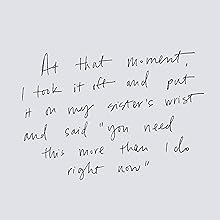 At that moment,
I took it off and put
it on my sister's wrist
and said "you need
this more than I do
right now"